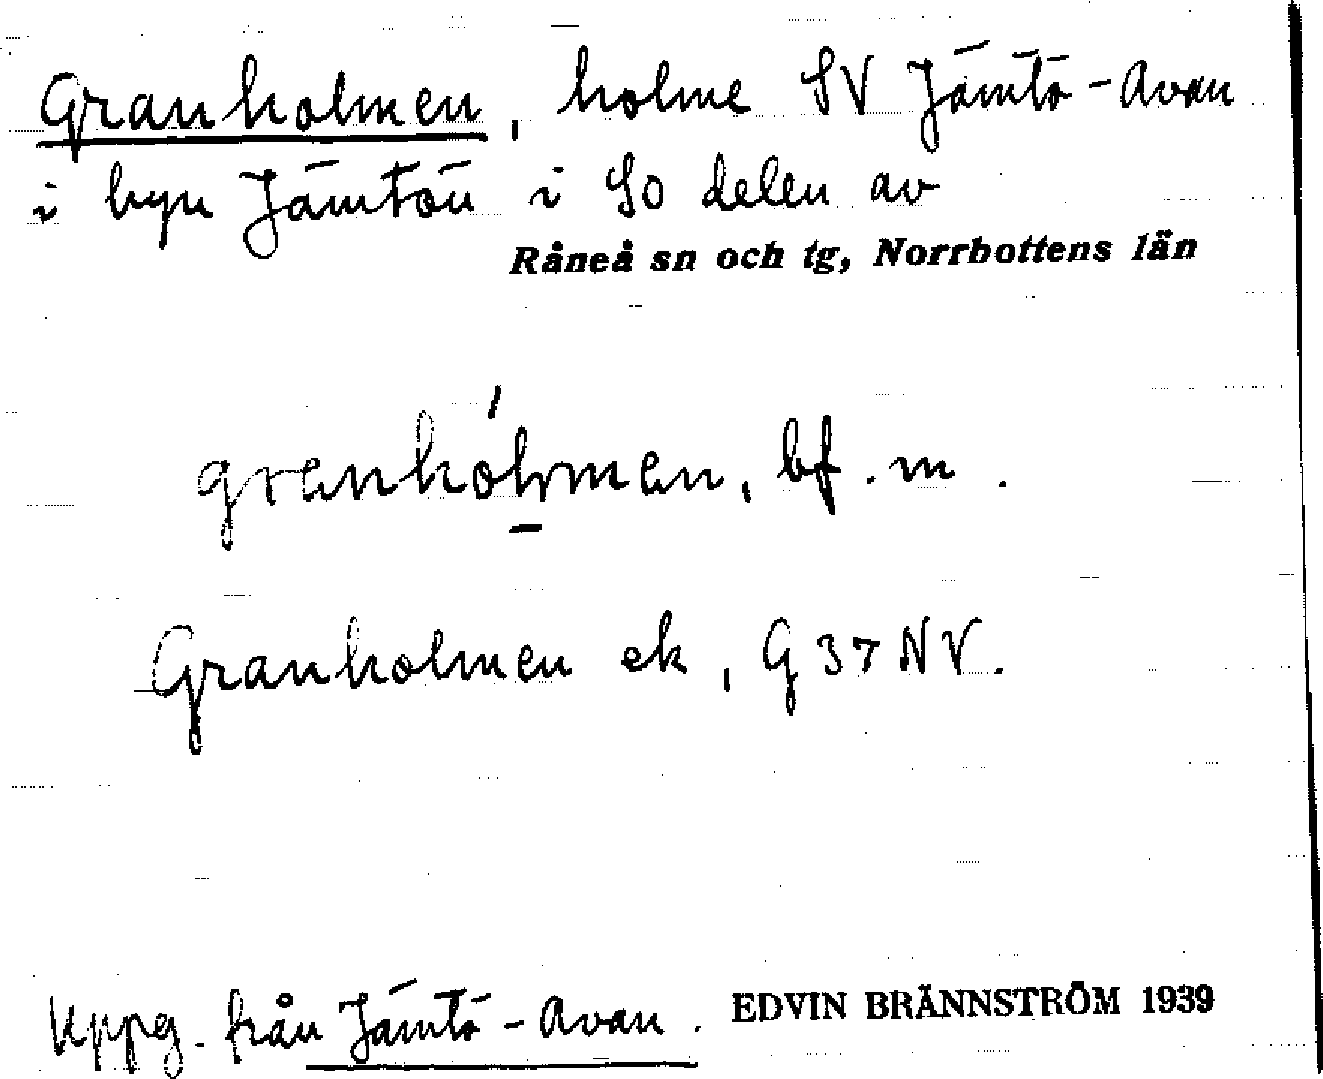 Granholmen, holme SV Jämtö-Avan
i byn Jämtön i SO delen av
Råneå sn och tg, Norrbottens län
granhólmɐn, bf. m.
Granholmen ek, G 37 NV.
Uppg. från Jämtö-Avan. EDVIN BRÄNNSTRÖM 1939